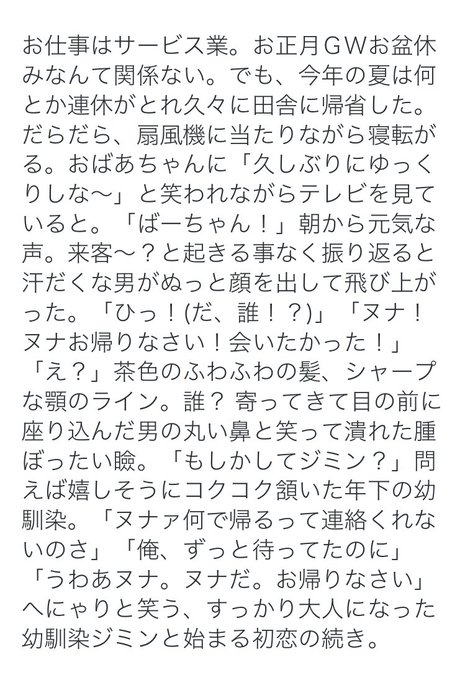 お仕事はサービス業。お正月ＧＷお盆休
みなんて関係ない。でも、今年の夏は何
とか連休がとれ久々に田舎に帰省した。
だらだら、扇風機に当たりながら寝転が
る。おばあちゃんに「久しぶりにゆっく
りしな〜」と笑われながらテレビを見て
いると。「ばーちゃん！」朝から元気な
声。来客〜？と起きる事なく振り返ると
汗だくな男がぬっと顔を出して飛び上が
った。「ひっ！(だ、誰！？)」「ヌナ！
ヌナお帰りなさい！会いたかった！」
「え？」茶色のふわふわの髪、シャープ
な顎のライン。誰？ 寄ってきて目の前に
座り込んだ男の丸い鼻と笑って潰れた腫
ぼったい瞼。「もしかしてジミン？」問
えば嬉しそうにコクコク頷いた年下の幼
馴染。「ヌナァ何で帰るって連絡くれな
いのさ」「俺、ずっと待ってたのに」
「うわあヌナ。ヌナだ。お帰りなさい」
へにゃりと笑う、すっかり大人になった
幼馴染ジミンと始まる初恋の続き。